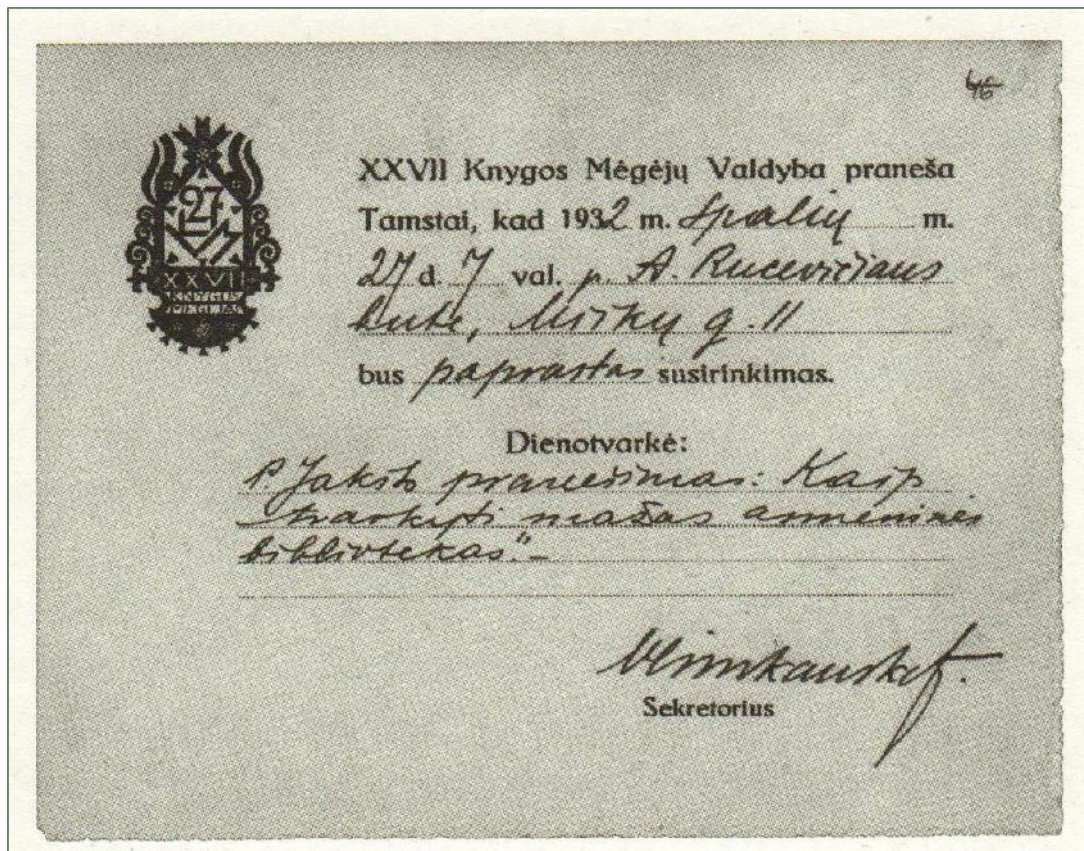 46
27
XXVII
KNYGOS
MĖGĖJAI
XXVII Knygos Mėgėjų Valdyba praneša
Tamstai, kad 1932 m. spalių m.
27 d. 7 val. p. A. Rucevičiaus
bute, Miškų g. 11
bus paprastas susirinkimas.
Dienotvarkė:
P. Jakšto pranešimas: Kaip
tvarkyti mažas asmenines
bibliotekas."–
Sekretorius